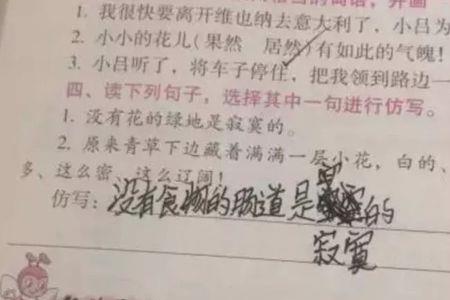 1. 我很快要离开维也纳去意大利了,小吕为
2. 小小的花儿(果然 居然)有如此的气魄!
3. 小吕听了,将车子停住,把我领到路边一
四、读下列句子,选择其中一句进行仿写。
1. 没有花的绿地是寂寞的。
2. 原来青草下边藏着满满一层小花,白的、
多、这么密、这么辽阔!
仿写:没有食物的肠道是的
寂寞